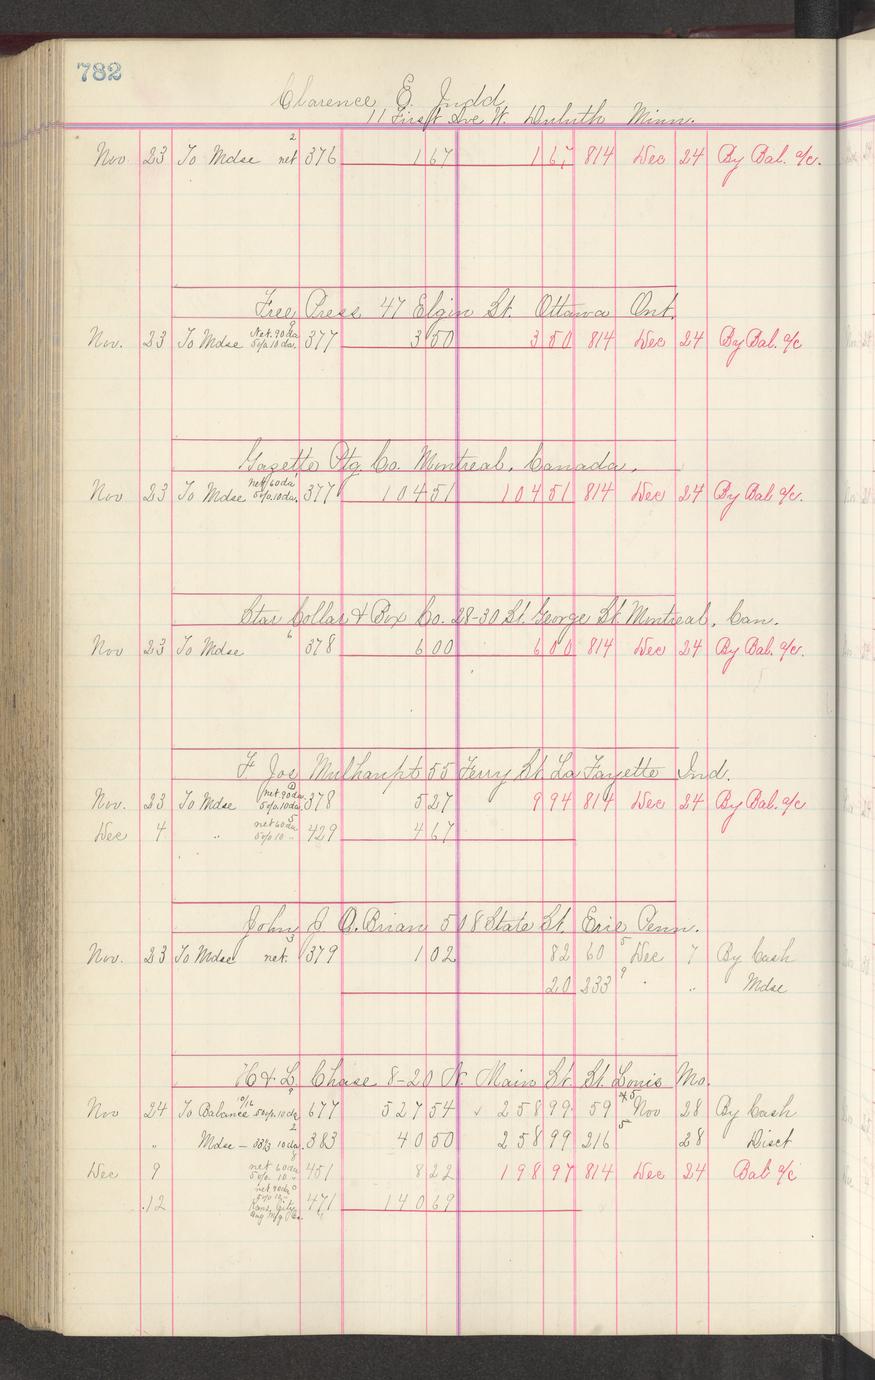 782
Clarence E. Judd
11 First Ave W. Duluth Minn.
Nov 23 To Mdse 2 net 376 1 67 1 67 814 Dec 24 By Bal. a/c.
Free Press 47 Elgin St. Ottawa Ont.
Nov. 23 To Mdse Net 90 da 5% 10 da. 377 3 50 3 50 814 Dec 24 By Bal. a/c
Gazette Ptg. Co. Montreal, Canada.
Nov 23 To Mdse net 60 da 5% 10 da. 377 104 51 104 51 814 Dec 24 By Bal a/c.
Star Collar & Box Co. 28-30 St. George St. Montreal, Can.
Nov 23 To Mdse 6 378 6 00 6 00 814 Dec 24 By Bal. a/c.
F Jos Mulhaupt 55 Ferry St. La Fayette Ind.
Nov. 23 To Mdse net 90 da. 5% 10 da. 378 5 27 9 94 814 Dec 24 By Bal. a/c
Dec 4 " net 60 da 5% 10 " 429 4 67
John J. O.Brian 508 State St. Erie Penn.
Nov. 23 To Mdse 3 net. 379 1 02 82 60 5 Dec 7 By Cash
20 233 9 " " Mdse
H & L Chase 8-20 N. Main St. St. Louis Mo.
Nov 24 To Balance 9/16 5% 10 da 677 527 54 ✓ 258 99 59 Nov 28 By Cash
" Mdse — 33⅓ 10 da. 383 40 50 258 99 216 5 28 Disct
Dec 9 net 60 da 5% 10 " 451 8 22 198 97 814 Dec 24 Bal a/c
12 net 90 da 5% 10 " Kans. City Bag Mfg Co. 471 140 69